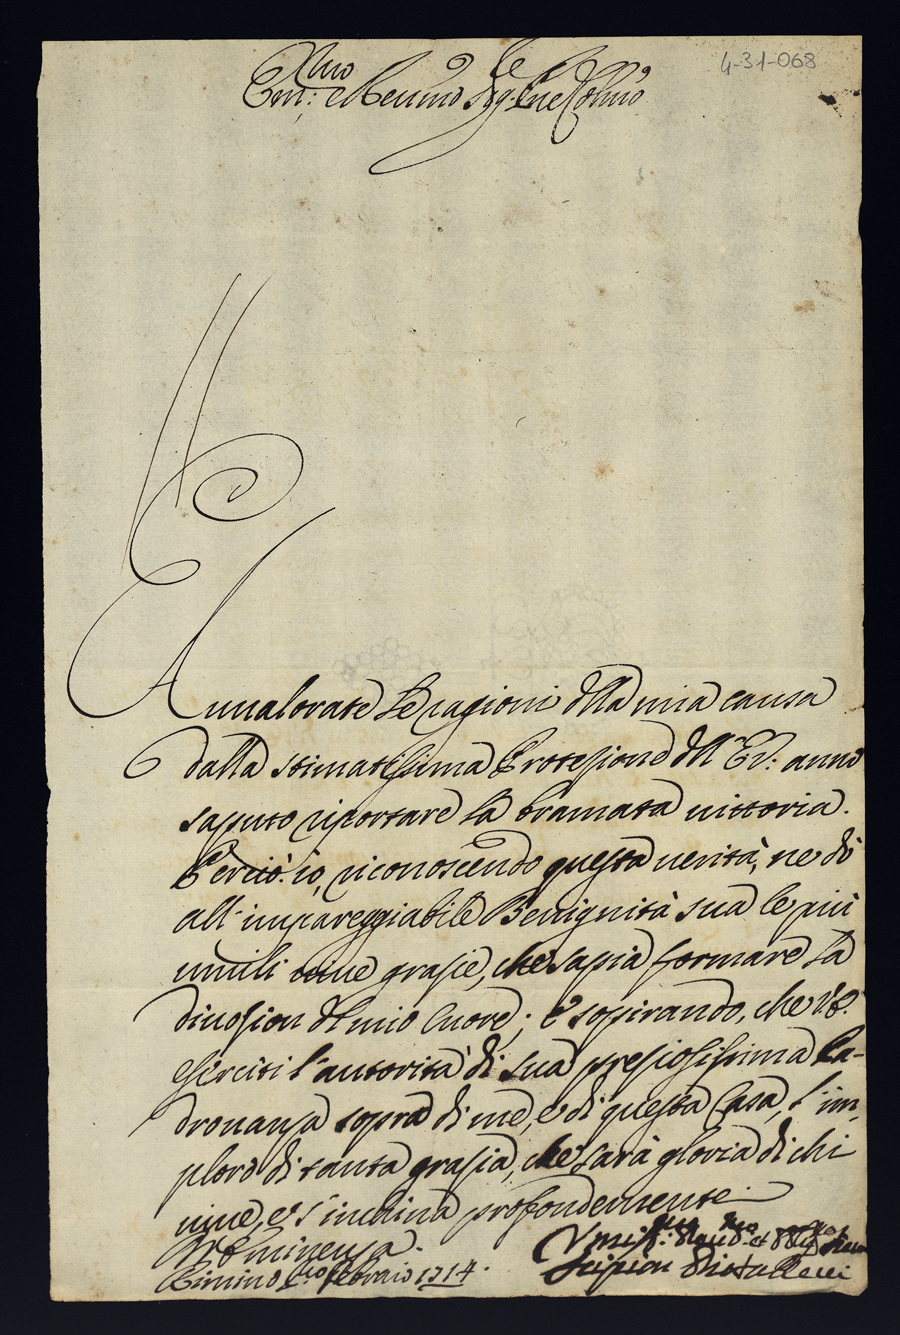 4-31-068
Em:mo e Re:umo Sig.re Pne Colmo
Auualorate le ragioni dlla mia causa
dalla stimatissima Protezione dll' E.V: anno
saputo riportare la bramata uittoria.
Perciò io, riconoscendo questa uerità, ne dò
all'impareggiabile Benignità sua le più
umili uiue grazie, che sapià formare la
diuozion dl mio Cuore; e sospirando, che V.E.
eserciti l'autorità di sua preziosissima Pa-
dronanza sopra di me, e di questa Casa, l'im-
ploro di tanta grazia, che sarà gloria di chi
uiue, e s'inchina profondemente
Vr'Eminenza.
Rimino Pmo febraio 1714.
Vmiss:mo Deu:mo et Obbl:mo
Scipion Diotalleui